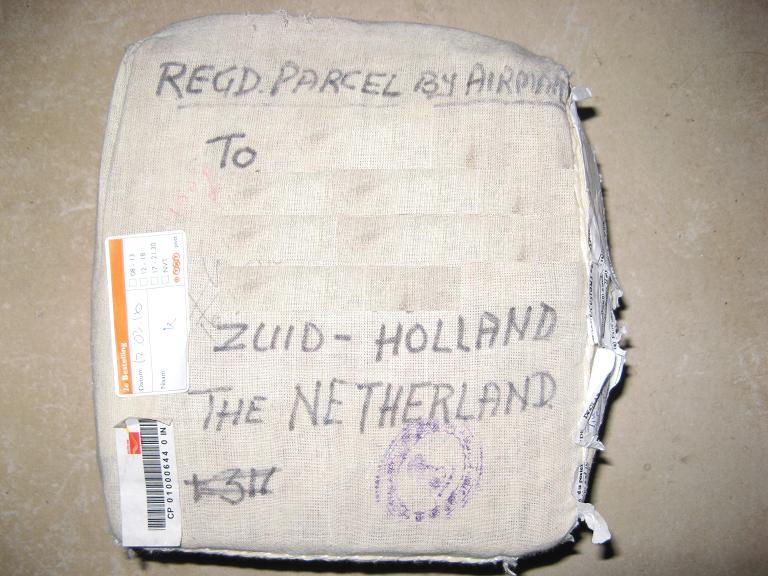 REGD. PARCEL BY AIRMAIL
To
ZUID - HOLLAND
THE NETHERLAND.
1e Bestelling
Datum
Naam
08 - 13
12 - 18
17 - 21.30
NVT
post
CP 01000644 0 IN